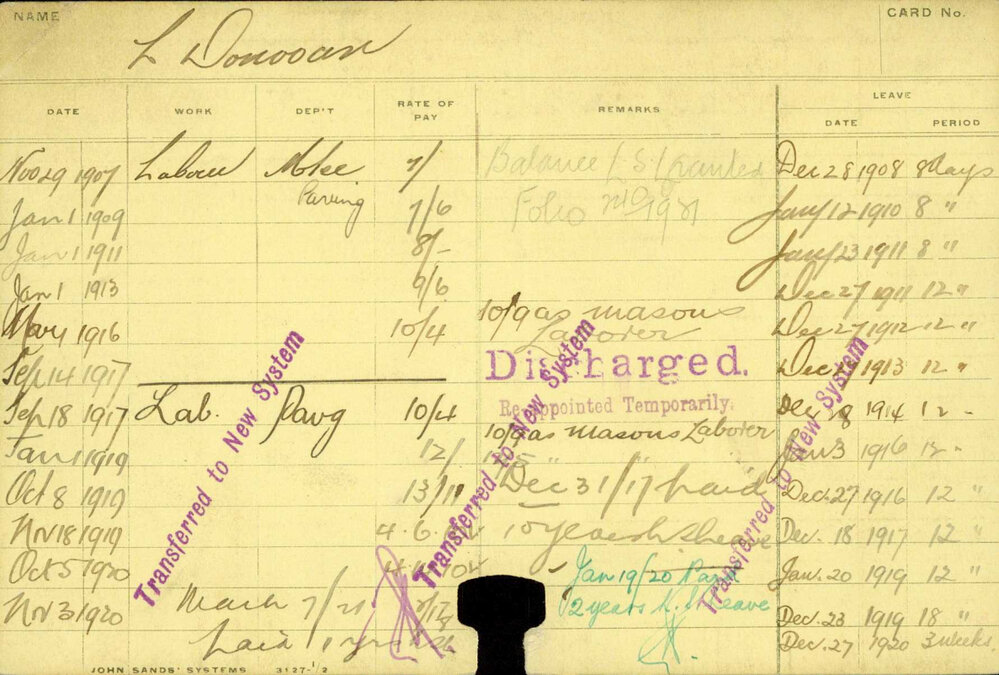 NAME
CARD No.
L Donovan
DATE WORK DEP'T RATE OF PAY REMARKS LEAVE
DATE PERIOD
Nov 29 1907 Labour 7/ Balance L S Granted Dec 28 1908 8 days
Jan 1 1909 Paving 7/6 Folio 1921 Jany 12 1910 8 "
Jan 1 1911 8/- Jany 23 1911 8 "
Jan 1 1913 9/6 Dec 27 1911 12 "
May 1 1916 10/4 10/9 as masons Dec 27 1912 12 "
Laborer
Sep 14 1917 Discharged. Dec 1913 12 "
Sep 18 1917 Lab. Pavg 10/4 Re-appointed Temporarily. Dec 8 1914 12 "
10/9 as masons Laborer
Jan 1 1919 12/ Jan 3 1916 12 "
Oct 8 1919 13/11 Dec 31/17 Paid Dec. 27 1916 12 "
Nov 18 1919 4.6. 10 years Leave Dec. 18 1917 12 "
Oct 5 1920 Jan 19/20 Paid Jan. 20 1919 12 "
Nov 3 1920 March 7/21 2 years Leave Dec. 23 1919 18 "
Paid 1 yrs Dec. 27 1920 3 weeks.
Transferred to New System
Transferred to New System
Transferred to New System
JOHN SANDS' SYSTEMS 3127-1/2